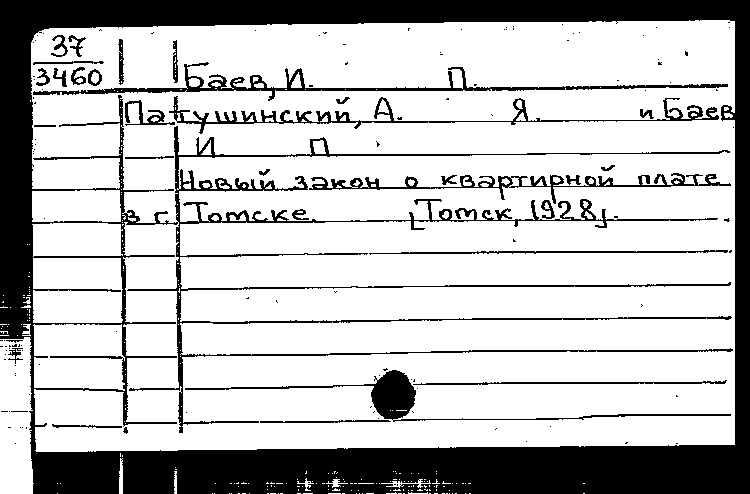 37
3460
Баев, И. П.
Патушинский, А. Я. и Баев
И. П
Новый закон о квартирной плате
в г. Томске. [Томск, 1928].